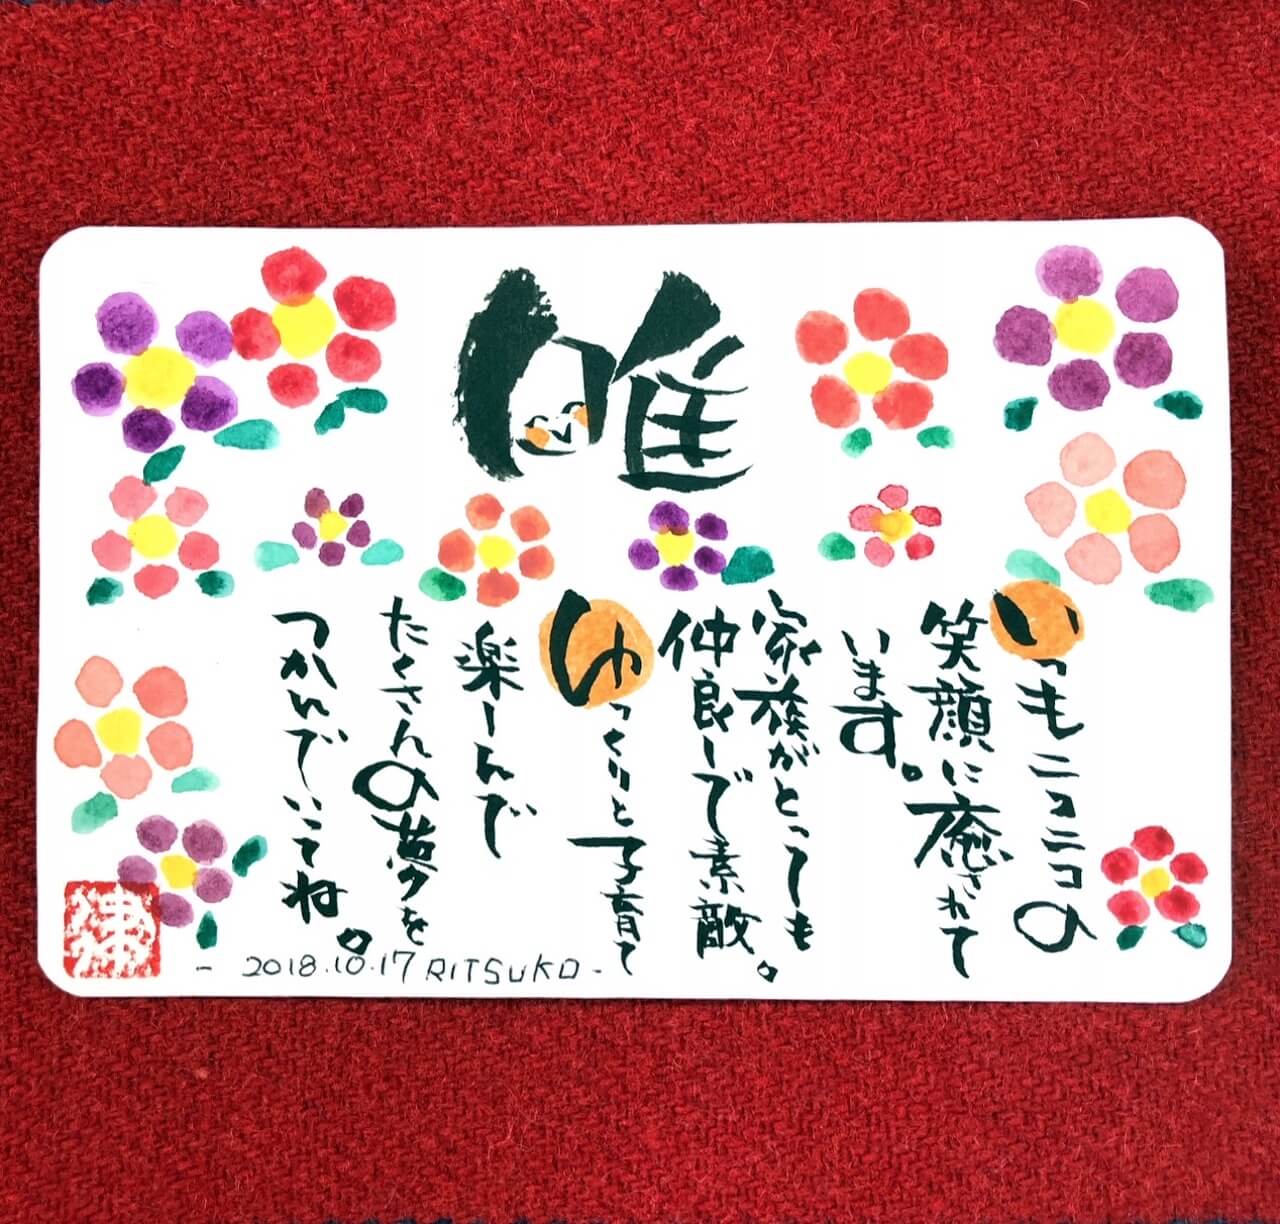 唯
いつもニコニコの
笑顔に癒されて
います。
家族がとっても
仲良しで素敵。
ゆっくりと子育て
楽しんで
たくさんの夢を
つかんでいってね。
- 2018.10.17 RITSUKO -